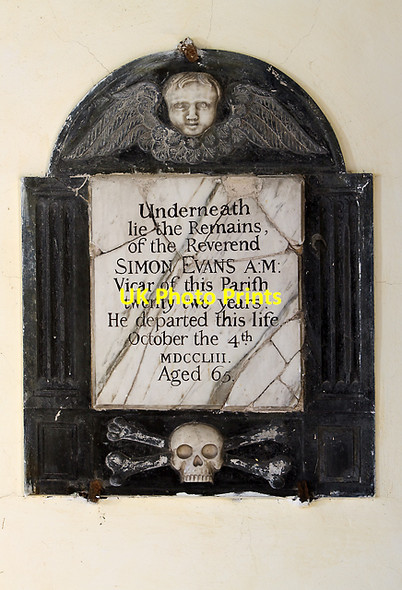 Underneath
lie the Remains,
of the Reverend
SIMON EVANS A:M:
Vicar of this Pariſh
UK Photo Prints
twenty two years
He departed this life
October the 4th
MDCCLIII.
Aged 65.